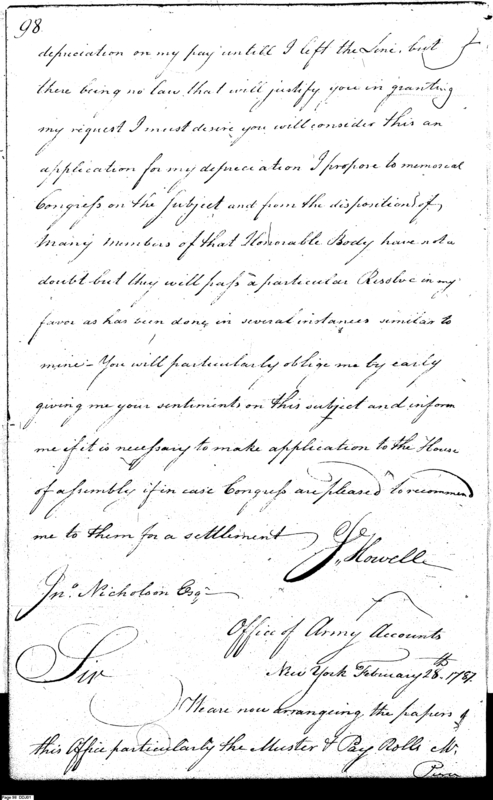 98
depreciation on my pay untill I left the Line, but
there being no law that will justify you in granting
my request I must desire you will consider this an
application for my depreciation I propose to memorial
Congress on the Subject and from the dispositions of
Many members of that Honorable Body have not a
doubt but they will pass a particular Resolve in my
favor as has been done, in several instances similar to
mine - You will particularly oblige me by early
giving me your sentiments on this subject and inform
me if it is necessary to make application to the House
of assembly if in case Congress are pleased to recommend
me to them for a settlement
Jn. Howell
Jno. Nicholson Esq
Office of Army Accounts
New York February 28th. 1787.
Sir
We are now arrangeing the papers of
this Office particularly the Muster & Pay Rolls Mr
Pierce
Page 98: DDJ01